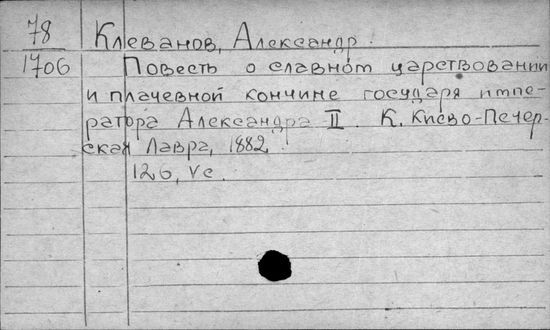 78 Клеванов, Александр.
1706 Повесть о славном царствовании
и плачевной кончине государя импе-
ратора Александра II. К. Киево-Печер-
ская Лавра, 1882.
126, Vс.